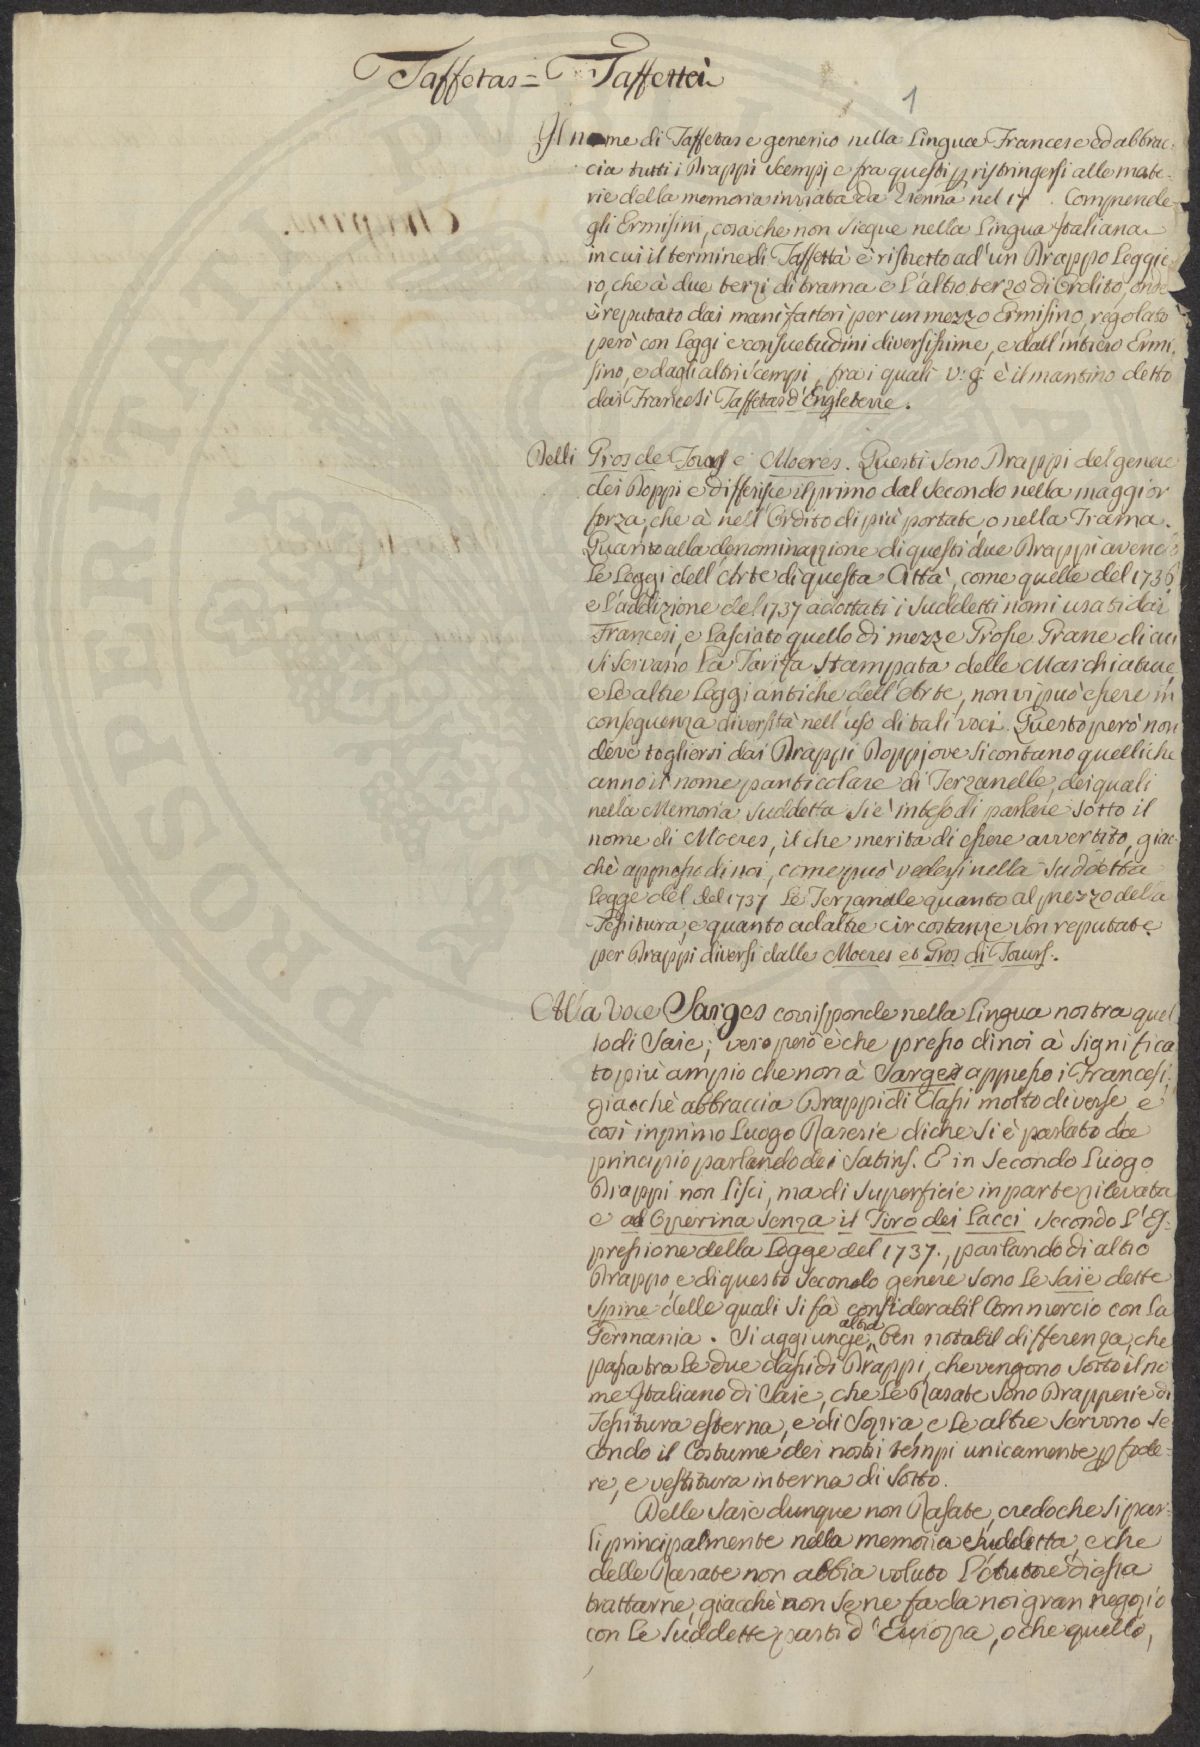 Taffetas = Taffettà
1
Il nome di Taffetas e generico nella Lingua Francese ed abbrac:
cia tutti i Drappi Scempj e fra questi p ristringersi alle mate-
rie della memoria inviata da Vienna nel 17 . Comprende
gli Ermisini, cosa che non siegue nella Lingua Italiana
in cui il termine di Taffettà è ristretto ad un Drappo Leggie
ro, che à due terzi di trama e l'altro terzo di Ordito, onde
è reputato dai manifattori per un mezzo Ermisino, regolato
però con Leggi e consuetudini diversissime, e dall'intiero Ermi.
sino, e dagli altri Scempi, fra i quali v: g: è il mantino detto
dai Francesi Taffetas d'Engleterre.
Delli Gros de Tours e Moeres. Questi sono Drappi del genere
dei Doppi e differisce il primo dal secondo nella maggior
forza, che à nell'Ordito di più portate, o nella Trama.
Quanto alla denominazione di questi due Drappi avendo
le Leggi dell'Arte di questa Città, come quelle del 1736
e l'addizione del 1737 adottati i suddetti nomi usati dai
Francesi, e lasciato quello di mezze Grosse Grane di cui
si servano la Tariffa Stampata delle Marchiature
e le altre Leggi antiche dell'Arte, non vi può essere in
conseguenza diversità nell'uso di tali voci. Questo però non
deve togliersi dai Drappi Doppj ove si contano quelli che
anno il nome particolare di Terzanelle, dei quali
nella Memoria suddetta si è inteso di parlare sotto il
nome di Moeres, il che merita di essere avvertito, giac-
chè appresso di noi, come può vedersi nella suddetta
Legge del del 1737 le Terzanelle quanto al prezzo della
Tessitura, e quanto ad altre circostanze son reputate
per Drappi diversi dalle Moeres et Gros di Tours.
Alla voce Sarges corrisponde nella Lingua nostra quel
lo di Saie; vero però è che presso di noi à significa
to più ampio che non à Sarges appresso i Francesi;
giacchè abbraccia Drappi di Classi molto diverse, e
così in primo Luogo Raserie di che si è parlato da
principio parlando dei Satins. E in secondo Luogo
Drappi non lisci, ma di superficie in parte rilevata
e ad Operina senza il Tiro dei Lacci secondo l'Es-
pressione della Legge del 1737., parlando di altro
Drappo, e di questo secondo genere sono le Saie dette
Spine delle quali si fà considerabil Commercio con la
Germania. Si aggiunge, altra ben notabil differenza, che
passa tra le due classi di Drappi, che vengono sotto il no
me Italiano di Saie, che le Rasate sono Drapperie di
Tessitura esterna, e di Sopra, e le altre servono se
condo il Costume dei nostri tempi unicamente p fode-
re, e vestitura interna di sotto.
Delle Saie dunque non Rasate, credo che si par-
li principalmente nella memoria suddetta, e che
delle Rasate non abbia voluto l'Autore di essa
trattarne, giacchè non se ne fa da noi gran negozio
con le suddette parti d'Europa, o che quello,